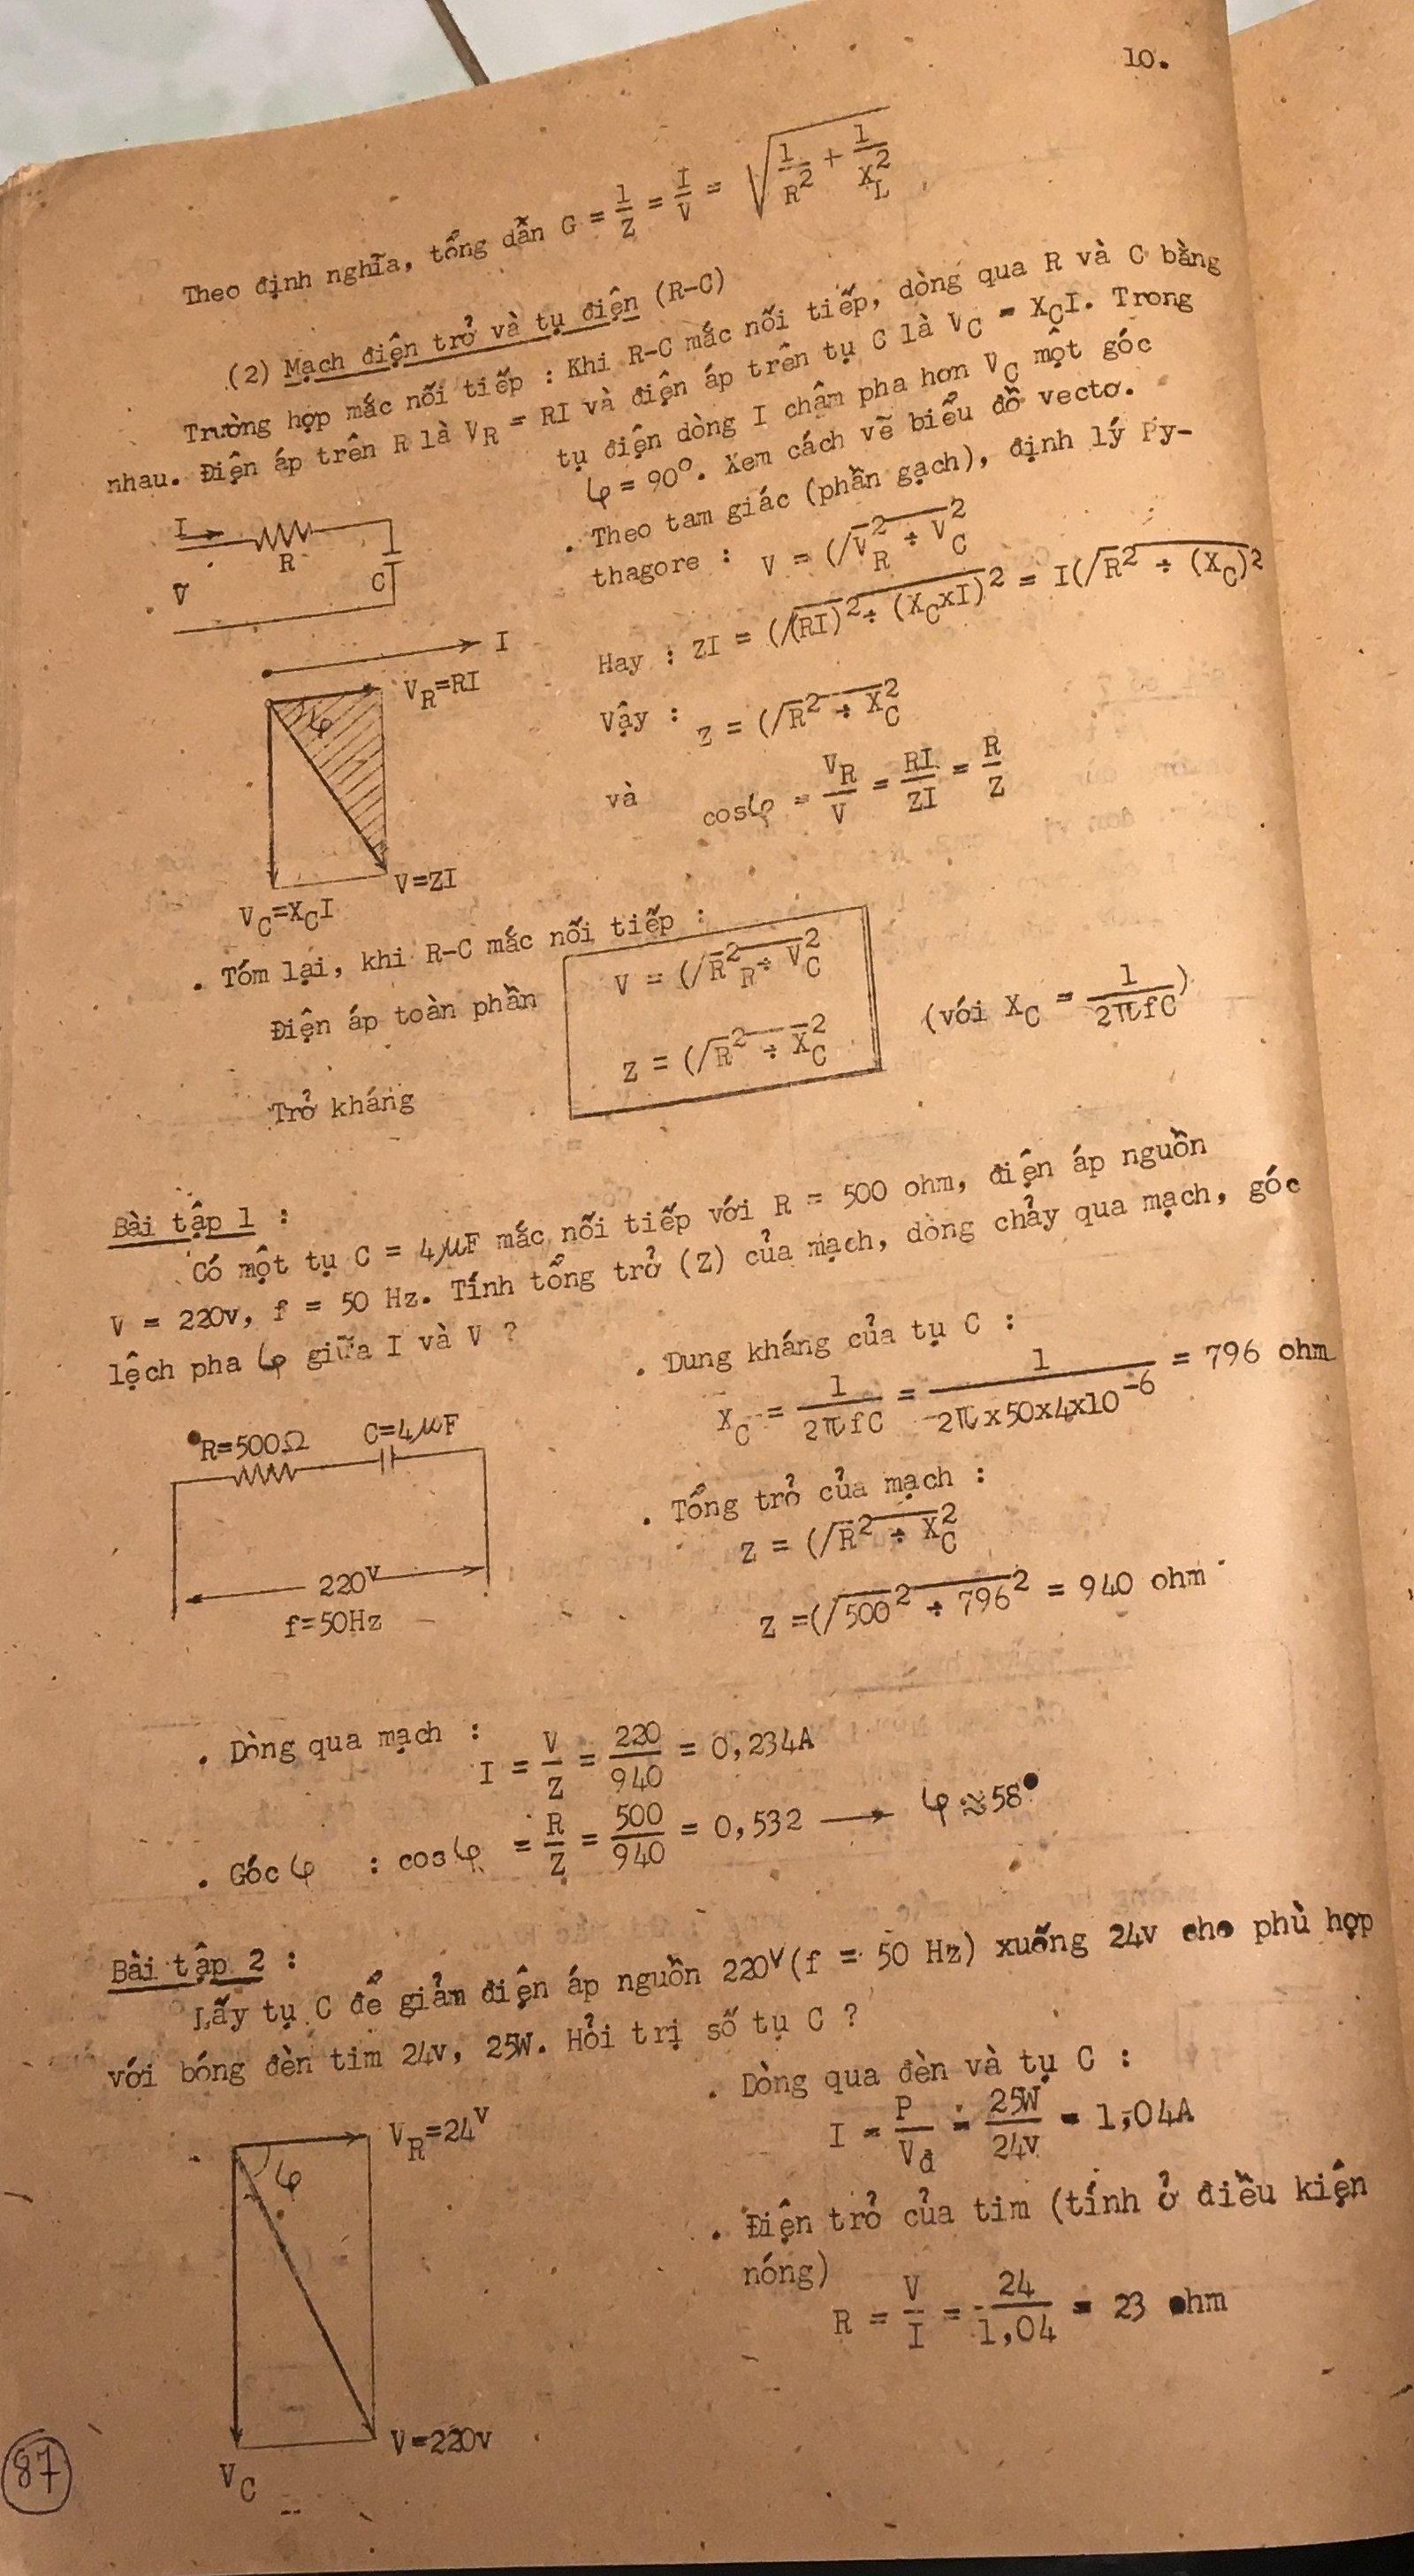 10.
Theo định nghĩa, tổng dẫn G = 1/Z = I/V = √(1/R² + 1/X_L²)
(2) Mạch điện trở và tụ điện (R-C)
Trường hợp mắc nối tiếp : Khi R-C mắc nối tiếp, dòng qua R và C bằng
nhau. Điện áp trên R là V_R = RI và điện áp trên tụ C là V_C = X_C I. Trong
tụ điện dòng I chậm pha hơn V_C một góc
φ = 90°. Xem cách vẽ biểu đồ vectơ.
. Theo tam giác (phần gạch), định lý Py-
thagore : V = √(V_R² + V_C²)
I
R
V
C
Hay : ZI = √((RI)² + (X_C x I)²) = I√(R² + (X_C)²
I
V_R=RI
φ
V=ZI
V_C=X_C I
Vậy : Z = √(R² + X_C²)
và cosφ = V_R/V = RI/ZI = R/Z
. Tóm lại, khi R-C mắc nối tiếp :
Điện áp toàn phần V = √(R²_R + V_C²)
(với X_C = 1/2πfC)
Trở kháng Z = √(R² + X_C²)
Bài tập 1 :
Có một tụ C = 4μF mắc nối tiếp với R = 500 ohm, điện áp nguồn
V = 220v, f = 50 Hz. Tính tổng trở (Z) của mạch, dòng chảy qua mạch, góc
lệch pha φ giữa I và V ?
. Dung kháng của tụ C :
X_C = 1/2πfC = 1/2π x 50x4x10⁻⁶ = 796 ohm
R=500Ω C=4μF
220V
f=50Hz
. Tổng trở của mạch :
Z = √(R² + X_C²)
Z = √(500² + 796²) = 940 ohm
. Dòng qua mạch :
I = V/Z = 220/940 = 0,234A
. Góc φ : cosφ = R/Z = 500/940 = 0,532 → φ ≈ 58°
Bài tập 2 :
Lấy tụ C để giảm điện áp nguồn 220V (f = 50 Hz) xuống 24v cho phù hợp
với bóng đèn tim 24v, 25W. Hỏi trị số tụ C ?
. Dòng qua đèn và tụ C :
I = P/V_đ = 25W/24v = 1,04A
V_R=24V
φ
V=220v
V_C
. Điện trở của tim (tính ở điều kiện
nóng)
R = V/I = 24/1,04 = 23 ohm
87